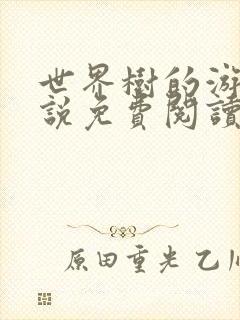 世界樹的游
說免費閱讀
原田重光 乙川